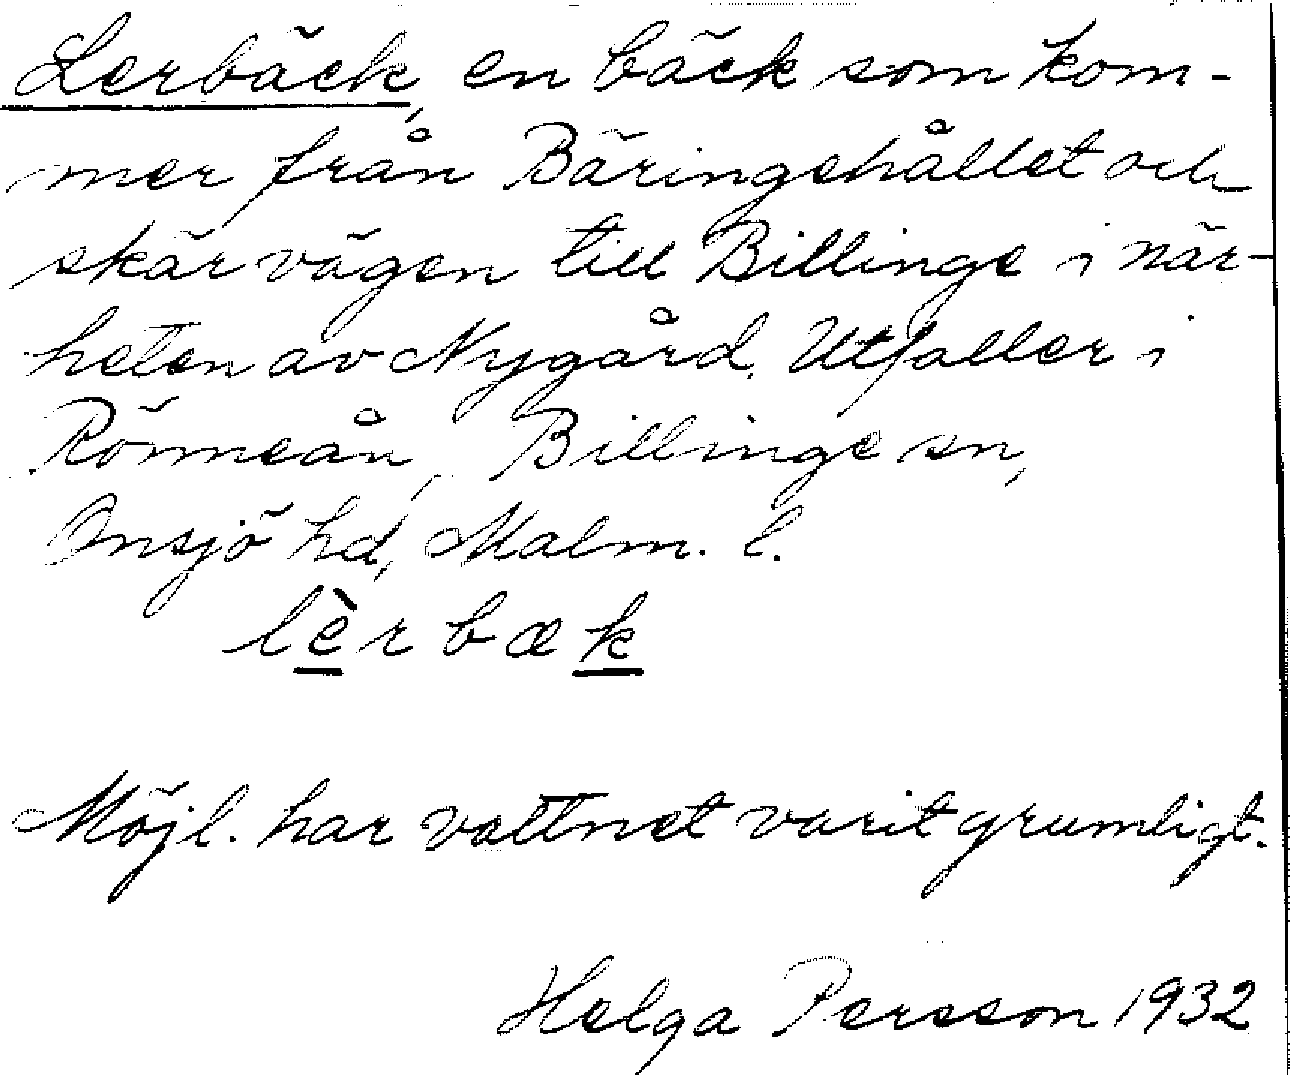 Lerbäck, en bäck som kom-
mer från Bäringehållet och
skär vägen till Billinge i när-
heten av Nygård. Utfaller i
Rönneån, Billinge sn,
Onsjö hd, Malm. l.
lèrbæk
Möjl. har vattnet varit grumligt.
Helga Persson 1932